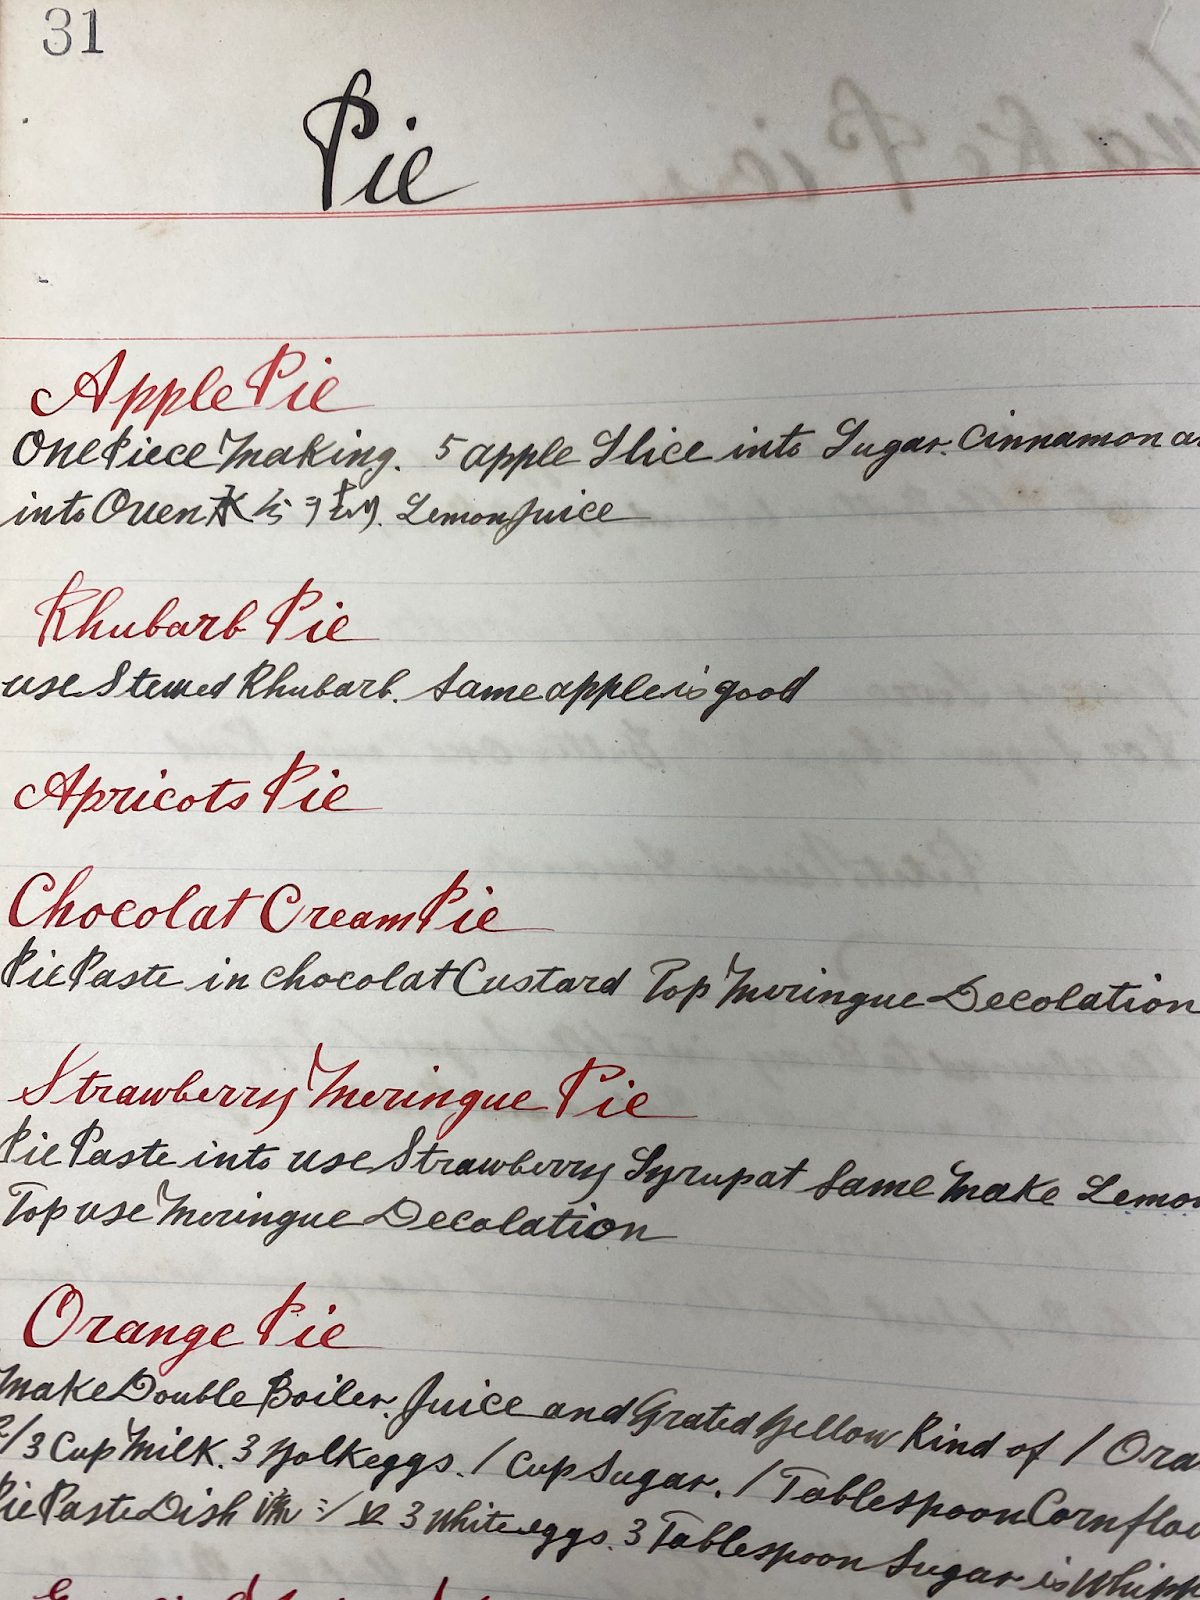 31
Pie
Apple Pie
One Piece Making. 5 apple Slice into Sugar. Cinnamon
into Oven Lemon Juice
Rhubarb Pie
use Stewed Rhubarb. Same apple is good
Apricots Pie
Chocolat Cream Pie
Pie Paste in Chocolat Custard Top Meringue Decolation
Strawberry Meringue Pie
Pie Paste into use Strawberry Syrup at Same Make Lemon
Top use Meringue Decolation
Orange Pie
Make Double Boiler. Juice and Grated Yellow Rind of 1 Ora
2/3 Cup Milk. 3 Yolk eggs. 1 Cup Sugar. 1 Tablespoon Cornflou
Pie Paste Dish 3 White eggs. 3 Tablespoon Sugar is Whipp